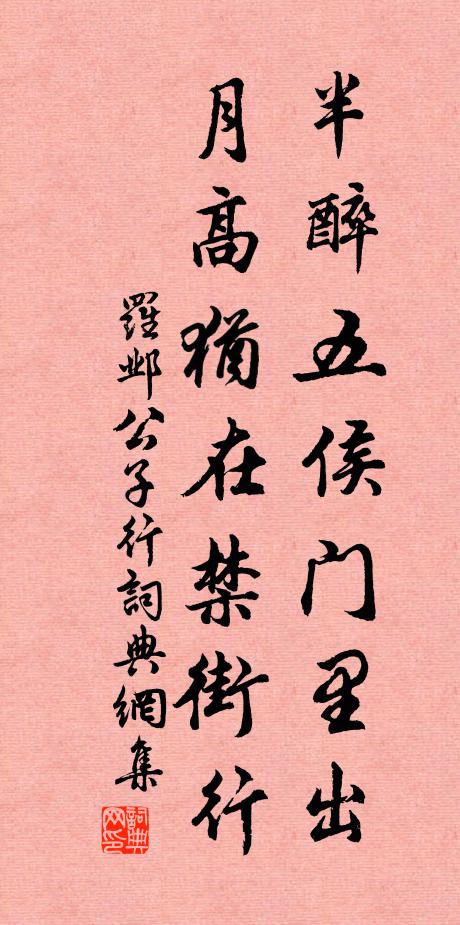 半醉五侯门里出
月高犹在禁街行
羅邺公子行詞典網集
詞典
网印